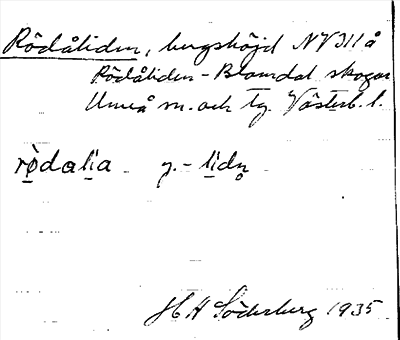 Rödåliden, bergshöjd NV 311 å
Rödåliden - Bramdal skogar
Umeå sn. och tg. Västerb. l.
rö̀dalia y. - lidn̥
H A Söderberg 1935